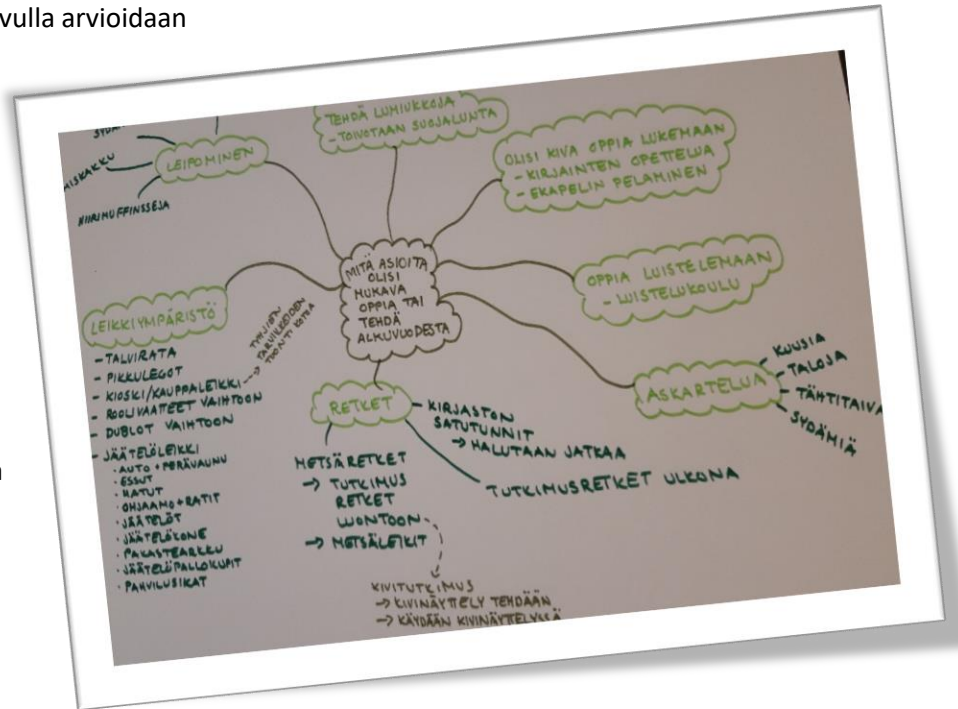 vulla arvioidaan
LEIPOMINEN
NIIRIMUFFINSSEJA
TEHDÄ LUMIUKKOJA
- TOIVOTAAN SUOJALUNTA
OLISI KIVA OPPIA LUKEMAAN
- KIRJAINTEN OPETTELUA
- EKAPELIN PELAAMINEN
MITÄ ASIOITA
OLISI
MUKAVA
OPPIA TAI
TEHDÄ
ALKUVUODESTA
OPPIA LUISTELEMAAN
- LUISTELUKOULU
ASKARTELUA
KUUSIA
TALOJA
TÄHTITAIVA
SYDÄMIÄ
LEIKKIYMPÄRISTÖ
- TALVIRATA
- PIKKULEGOT
- KIOSKI/KAUPPALEIKKI
TYHJIEN
TARVIKKEIDEN
TUONTI KOTOA
- ROOLIVAATTEET VAIHTOON
- DUBLOT VAIHTOON
- JÄÄTELÖLEIKKI
· AUTO + PERÄVAUNU
· ESSUT
· HATUT
· OHJAAMO + RATIT
· JÄÄTELÖT
· JÄÄTELÖKONE
· PAKASTEARKKU
· JÄÄTELÖPALLOKUPIT
· PAHVILUSIKAT
RETKET
- KIRJASTON
SATUTUNNIT
→ HALUTAAN JATKAA
TUTKIMUSRETKET ULKONA
METSÄRETKET
→ TUTKIMUS
RETKET
LUONTOON
→ METSÄLEIKIT
KIVITUTKIMUS
→ KIVINÄYTTELY TEHDÄÄN
→ KÄYDÄÄN KIVINÄYTTELYSSÄ